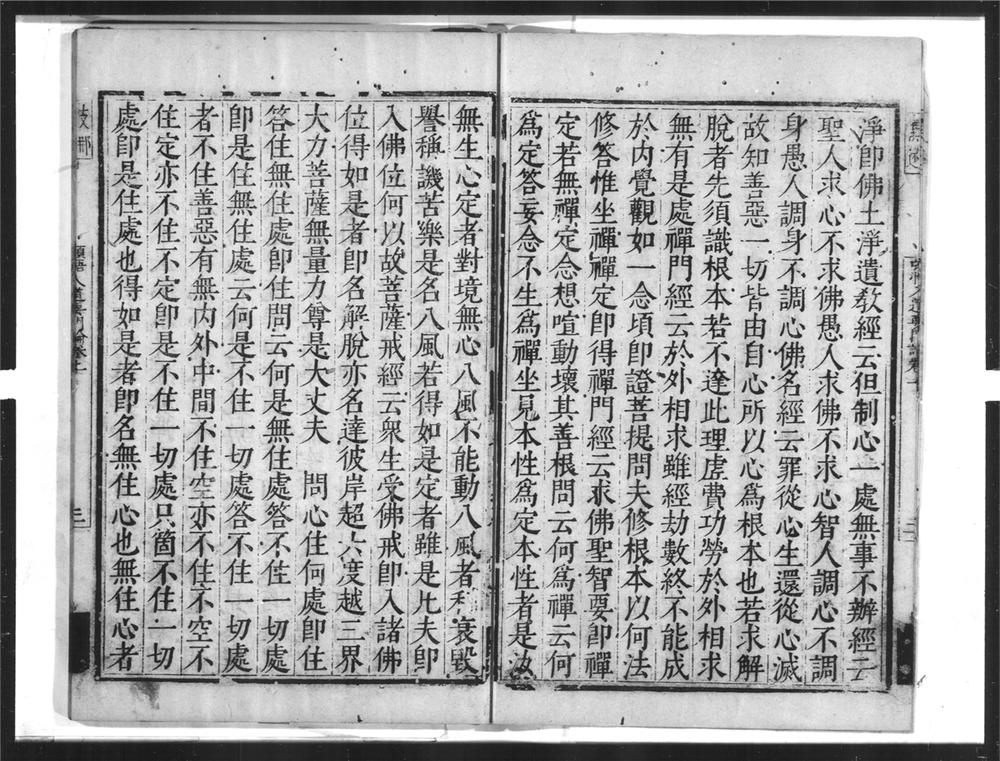 淨即佛土淨遺教經云但制心一處無事不辦經云
聖人求心不求佛愚人求佛不求心智人調心不調
身愚人調身不調心佛名經云罪從心生還從心滅
故知善惡一切皆由自心所以心爲根本也若求解
脫者先須識根本若不達此理虛費功勞於外相求
無有是處禪門經云於外相求雖經劫數終不能成
於內覺觀如一念頃即證菩提問夫修根本以何法
修答惟坐禪禪定即得禪門經云求佛聖智要即禪
定若無禪定念想喧動壞其善根問云何爲禪云何
爲定答妄念不生爲禪坐見本性爲定本性者是汝
無生心定者對境無心八風不能動八風者利衰毀
譽稱譏苦樂是名八風若得如是定者雖是凡夫即
入佛位何以故菩薩戒經云衆生受佛戒即入諸佛
位得如是者即名解脫亦名達彼岸超六度越三界
大力菩薩無量力尊是大丈夫　問心住何處即住
答住無住處即住問云何是無住處答不住一切處
即是住無住處云何是不住一切處答不住一切處
者不住善惡有無內外中間不住空亦不住不空不
住定亦不住不定即是不住一切處只箇不住一切
處即是住處也得如是者即名無住心也無住心者
頓悟入道要門論卷上
三